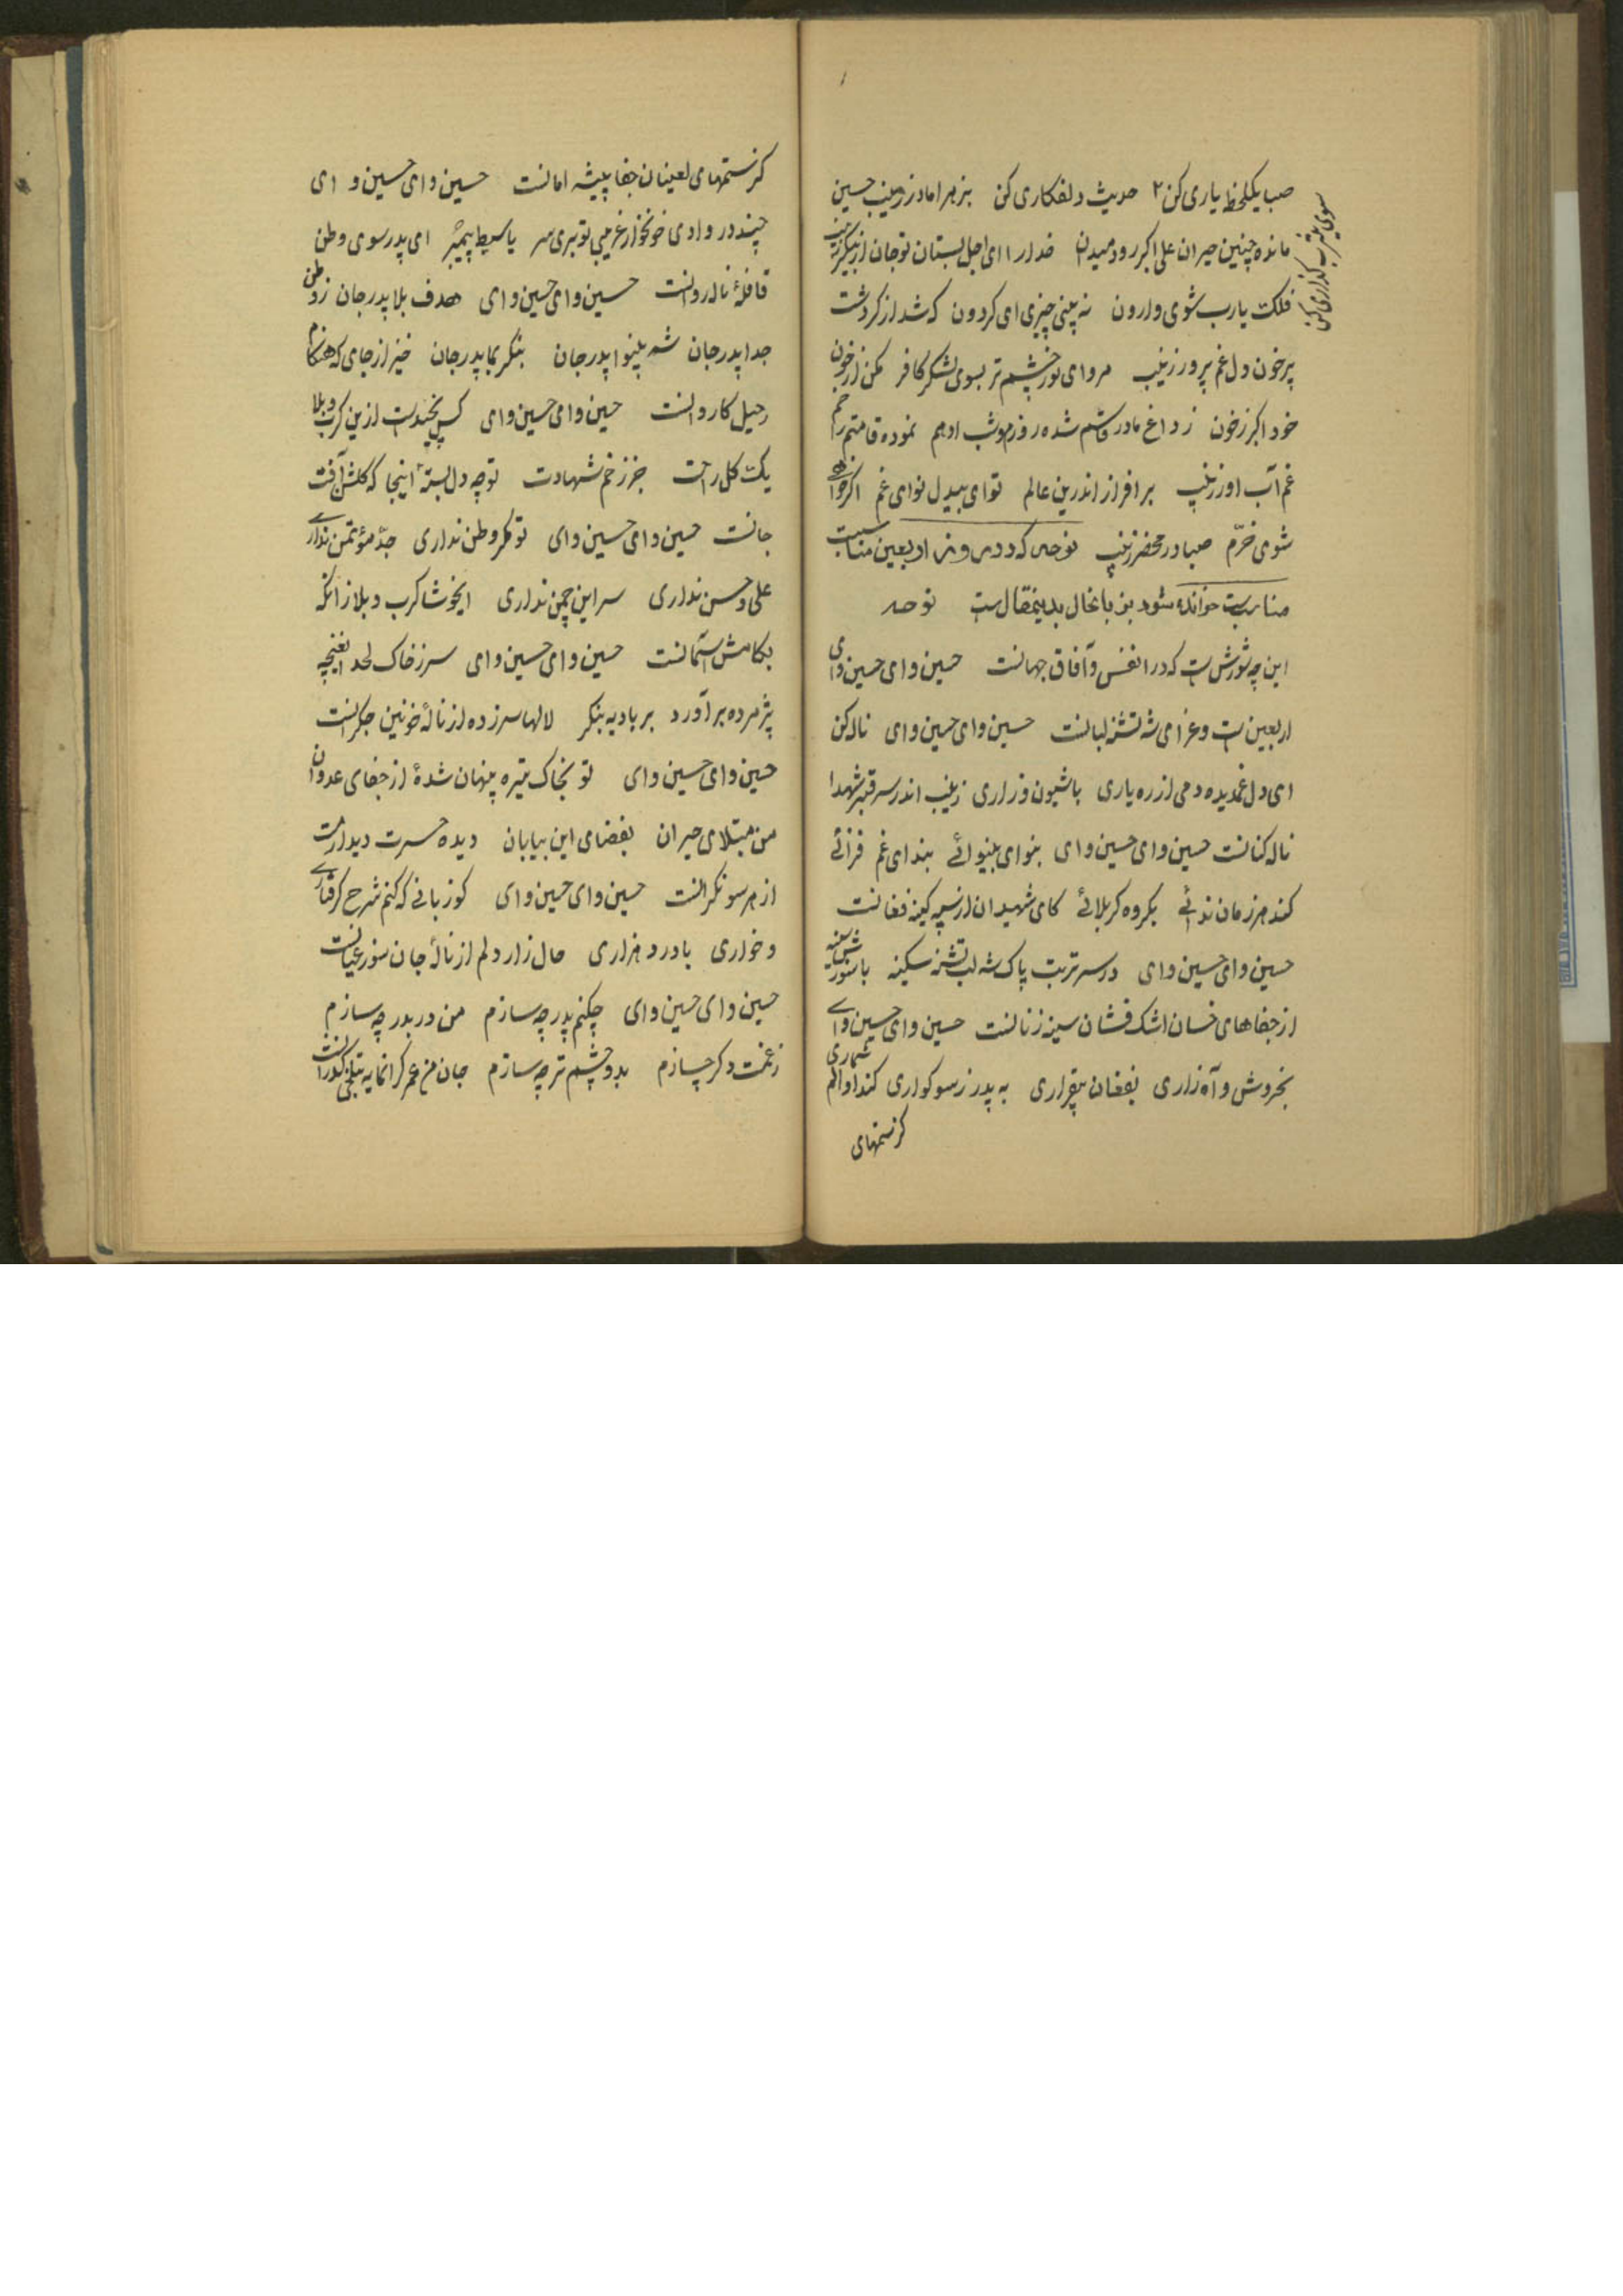 صبا یکلحظ یاری کن ۲ حدیث دلفکاری کن بزهرا مادر زینب حسین
سوی یثرب گذاری کن
مانده چنین حیران علی اکبر رود میدان خدارا ای اجل بستان تو جان از پیکر زینب
فلک یارب شوی وارون نه بینی چیزی ای کردون که شد از کردشت
پرخون دل غم پرور زینب مرو ای نور چشم تر بسوی لشکر کافر مکن از خون
خود اکبر زخون ز داغ مادر قاسم شده روزم چو شب ادهم نموده قامتم را خم
غم آب اور زینب بر افراز اندرین عالم توای بیدل نوای غم اکر خواهی
شوی خرّم صبا در محضر زینب نوحه که در روز اربعین مناسبت
مناسبت خوانده شود بزبانحال بدینمقالست نوحه
این چه شورش است که در انفس و آفاق جهانست حسین وای حسین وای
اربعین است و عزای شه تشنه لبانست حسین وای حسین وای ناله کن
ای دل غمدیده دمی از ره یاری با شیون و زاری زینب اندر سر قبر شهدا
ناله کنانست حسین وای حسین وای بنوای بینوائی بندای غم فزائی
کند هر زمان ندائی بکروه کربلائی کای شهیدان از سپه کینه فغانست
حسین وای حسین وای در سر تربت پاک شه لب تشنه سکینه با شورش سینه
از جفاهای خسان اشک فشان سینه زنانست حسین وای حسین وای
بخروش و آه زاری بفغان بیقراری به پدر ز سوکواری کند او الم شماری
کز ستمهای
کز ستمهای لعینان جفا پیشه امانست حسین وای حسین و ای
چند در وادی خونخوار غریبی تو بری سر یا سبط پیمبر ای پدر سوی وطن
قافلهٔ ناله روانست حسین وای حسین وای هدف بلا پدر جان ز وطن
جدا پدر جان شه بینوا پدر جان بنکر بما پدر جان خیز از جای که هنکام
رحیل کاروانست حسین وای حسین وای کس نچیدست ازین کرب و بلا
یک کل راحت جز زخم شهادت توچه دل بستهٔ اینجا که کلش آفت
جانست حسین وای حسین وای تو مکر وطن نداری جدّ مؤتمن نداری
علی و حسن نداری سر این چمن نداری ایخوشا کرب و بلا زانکه
بکامش آسمانست حسین وای حسین وای سر ز خاک لحد ایغنچه
پژمرده برآورد بر بادیه بنکر لالها سر زده از نالهٔ خونین جکرانست
حسین وای حسین وای تو بخاک تیره پنهان شدهٔ از جفای عدوان
من مبتلای حیران بفضای این بیابان دیده حسرت دیدارت
از هر سو نکرانست حسین وای حسین وای کو زبانی که کنم شرح کرفتاری
و خواری با درد هزاری حال زار دلم از نالهٔ جان سوز عیانست
حسین وای حسین وای چکنم پدر چه سازم من در بدر چه سازم
ز غمت دکر چسازم بدو چشم تر چه سازم جان من عمر کرانمایه بتلخی کذرانست